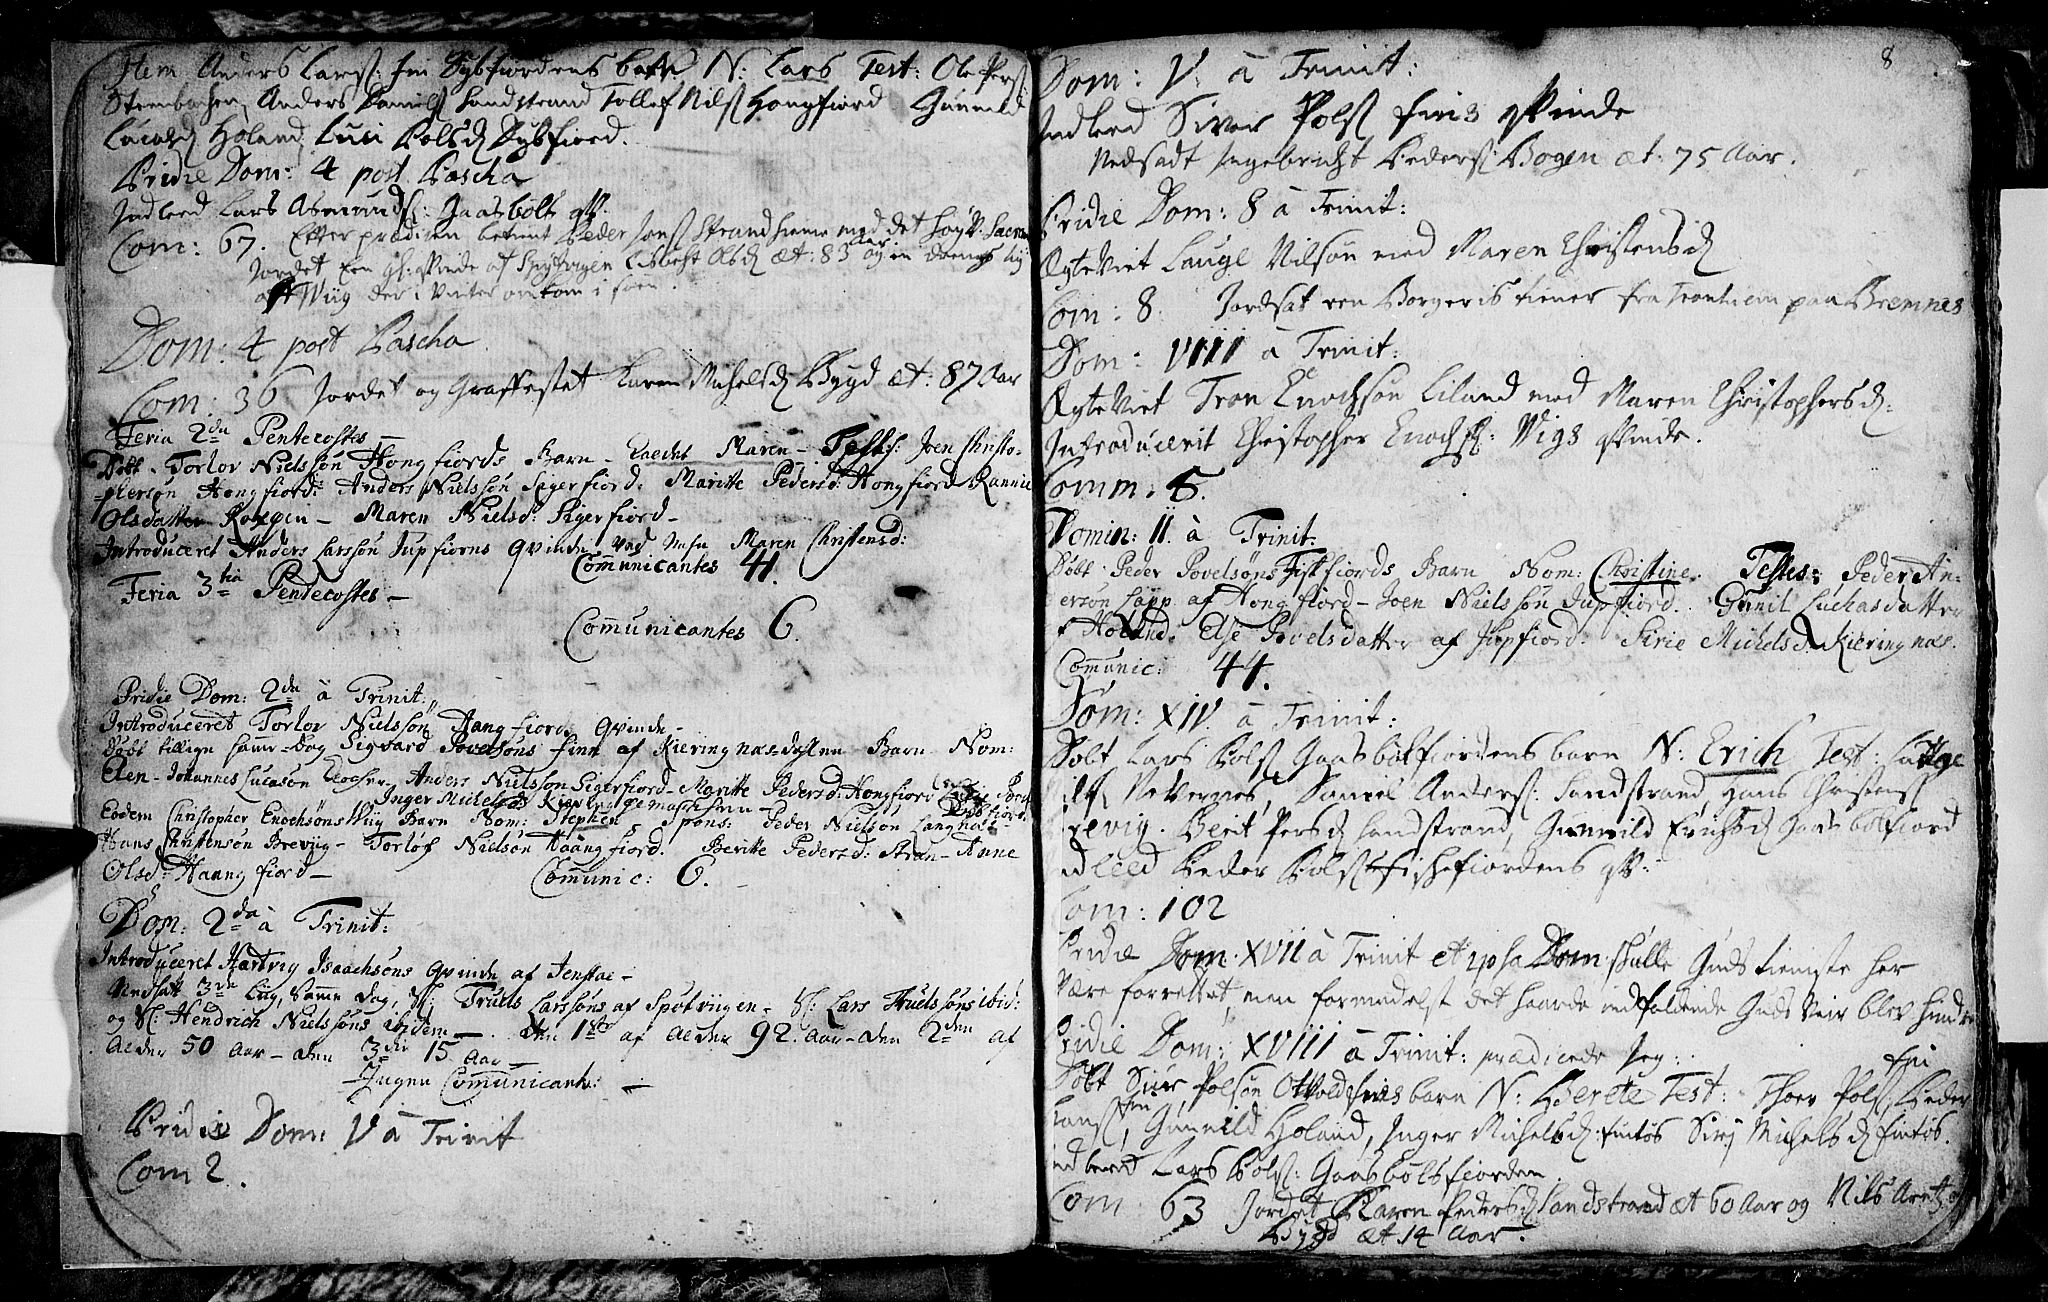 Item Anders Lars: fin Dybfiordens barn N: Lars Test: Ole Pers
Strenbachen, Anders Daniels Sandstrand Tollef Nils Hongfiord Gunnild
Lucasd Holand, Luci Polsd Dybfiord.
Pridie Dom: 4 post Pascha
Indleed Lars Asmunds: Gaasbolts qv.
Com: 67. Efter prædiken betient Peder Jons Strand hiemme med det høyv: Sacram
Jordet Een Gl: qvinde af Spitvigen Lisbeht Olsd æt: 83 aar og en drengs liig
af Wiig der i vinter omkom i søen.
Dom: 4 post Pascha.
Com: 36 Jordet og Graffestet Karen Michelsd Bygd æt: 87 Aar
Feria 2da Pentecostes —
Døbt. Torlov Nielssøn Hongfiords Barn — kaldet Maren — Testes: Joen Christo-
-phersøn Hongfiord: Anders Nielssøn Sigerfiord: Maritte Pedersd: Hongfiord Rannie
Olsdatter Roxøen — Maren Nielsd: Sigerfiord —
Introduceret Anders Larssøn Jupfiorns Qvinde ved Nafn Maren Christensd:
Communicantes 41.
Feria 3tia Pentecostes —
Communicantes 6.
Pridie Dom: 2da à Trinit:
Introduceret Torlov Nielssøn Haangfiords Qvinde —
Døbt tillige samme Dag Sigvard Povelsøns finn af Kieringnæsdahlen Barn Nom:
Elen — Johannes Lucasøn Anders Nielssøn Sigerfiord — Maritte Pedersd: Hongfiord
Inger Michelsd Kieringe
Eodem Christopher Enochsøns Wiig Barn Nom: Stephen Spons: Peder Nielsøn Langnæs —
Hans Christensøn Breviig — Torlof Nielsøn Haangfiord. Beritte Pedersd: Stran — Anne
Olsd: Haangfiord —
Communic: 6. —
Dom: 2da à Trinit:
Introduceret Hartvig Isaachsøns Qvinde af Jenstad —
Nedsatt 3de Liig, samme Dag, Sl: Truels Larssøns af Spotviigen — Sl: Lars Truelssøns ibid:
og Sl: Hendrich Nielssøns ibidem — den 1ste af Alder 92. Aar — den 2den af
Alder 50 Aar — den 3die 15 Aar —
— Ingen Communicant: —
Pridie Dom: V à Trinit
Com 2.
8
Dom: V. à Trinit:
Indleed Siver Pols fins qvinde
Nedsadt Ingebricht Peders: Bogen æt: 75 Aar.
Pridie Dom: 8 à Trinit:
ÆgteViet Lauge Nilsøn med Maren Christensd
Com: 8. Jordsat een Borgeris tiener fra Tronhiem paa Bremnes
Dom: VIII à Trinit:
ÆgteViet Tron Enochsøn Liland med Maren Christophersd:
Introducerit Christopher Enochs: Vigs qvinde.
Comm. 5.
Domin: 11. à Trinit:
Døbt Peder Povelsøns Fiskfiords Barn Nom: Christine. Testes: Peder An-
dersøn Lapp af Hongfiord — Joen Nielssøn Jupfiord. Gunil Luchasdatter
af Holand. Else Povelsdatter af Jupfiord. Sirie Michelsd Kieringnæs.
Communic: 44.
Dom: XIV à Trinit:
Døbt Lars Pols Gaasboltfiordens barn N: Erich Test: Lauge
Nils Nevernes, Daniel Anders: Sandstrand, Hans Christens
Brevig. Berit Persd Sandstrand, Gunnild Erichsd Gaasboltfiord
Indleed Peder Pols Fischefiordens qv:
Com: 102
Pridie Dom. XVII à Trinit et ipsa Dom: skulle Guds tieniste her
være forrettet, men formedelst det haarde indfaldende Guds Veir blev hindret
Pridie Dom: XVIII à Trinit: prædicede Jeg:
Døbt Siur Polsøn Otvold fins barn N: Berete Test: Thoer Pols, fin Peder
Hans fin, Gunnild Holand, Inger Michelsd: fintøs Sirj Michelsd fintøs.
Indleed Lars Pols: Gaasboltsfiorden.
Com: 63 Jordet Karen Pedersd Sandstrand æt 60 Aar og Nils Arntz
Bygd æt 14 Aar.